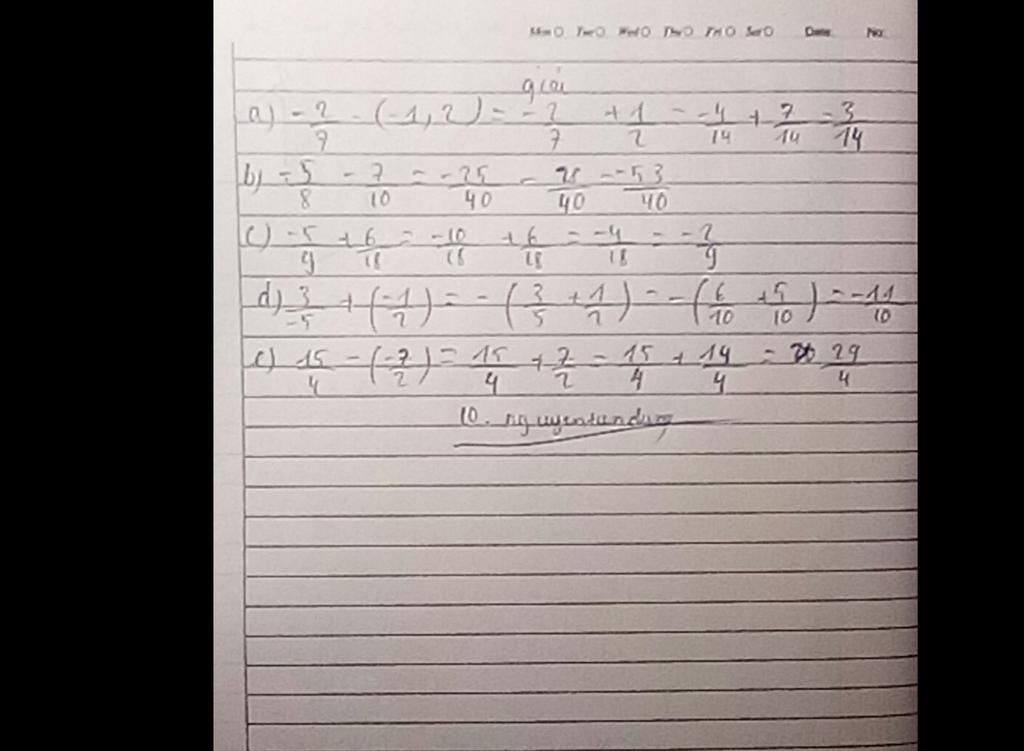 Mon Tue Wed Thu Fri Sat Date No.
giải
a) -2/9 - (-1,2) = -2/7 + 1/2 = -4/14 + 7/14 = 3/14
b) -5/8 - 7/10 = -25/40 - 28/40 = -53/40
c) -5/9 + 6/18 = -10/18 + 6/18 = -4/18 = -2/9
d) 3/-5 + (-1/2) = -(3/5 + 1/2) = -(6/10 + 5/10) = -11/10
e) 15/4 - (-7/2) = 15/4 + 7/2 = 15/4 + 14/4 = 29/4
10. nguyentandung